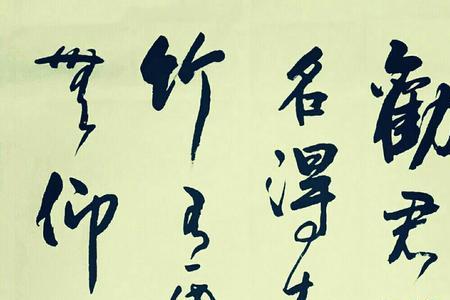 勸君
名得
竹有
無仰